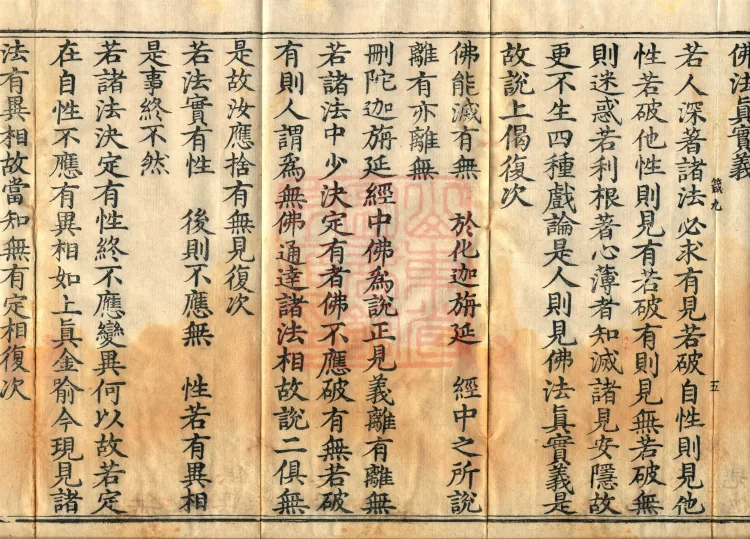 佛法眞實義
若人深著諸法必求有見若破自性則見他
九 五
性若破他性則見有若破有則見無若破無
則迷惑若利根著心薄者知滅諸見安隱故
更不生四種戲論是人則見佛法眞實義是
故說上偈復次
佛能滅有無 於化迦旃延 經中之所說
離有亦離無
刪陀迦旃延經中佛爲說正見義離有離無
若諸法中少決定有者佛不應破有無若破
有則人謂爲無佛通達諸法相故說二俱無
是故汝應捨有無見復次
若法實有性 後則不應無 性若有異相
是事終不然
若諸法決定有性終不應變異何以故若定
在自性不應有異相如上眞金喻今現見諸
法有異相故當知無有定相復次